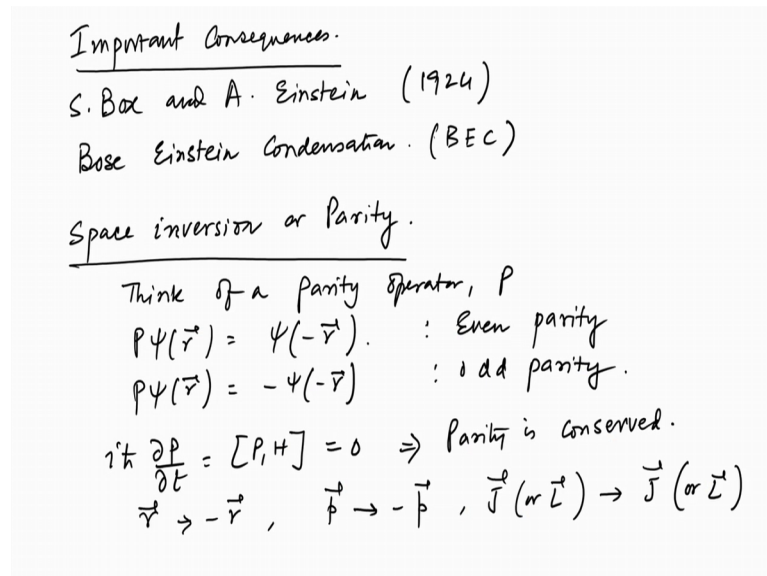 Important Consequences.
S. Bose and A. Einstein (1924)
Bose Einstein Condensation. (BEC)
Space inversion or Parity.
Think of a parity operator, P
Pψ(r⃗) = ψ(-r⃗). : Even parity
Pψ(r⃗) = -ψ(-r⃗) : odd parity.
iħ ∂P/∂t = [P,H] = 0 ⇒ Parity is conserved.
r⃗ → -r⃗, p⃗ → -p⃗, J⃗ (or L⃗) → J⃗ (or L⃗)